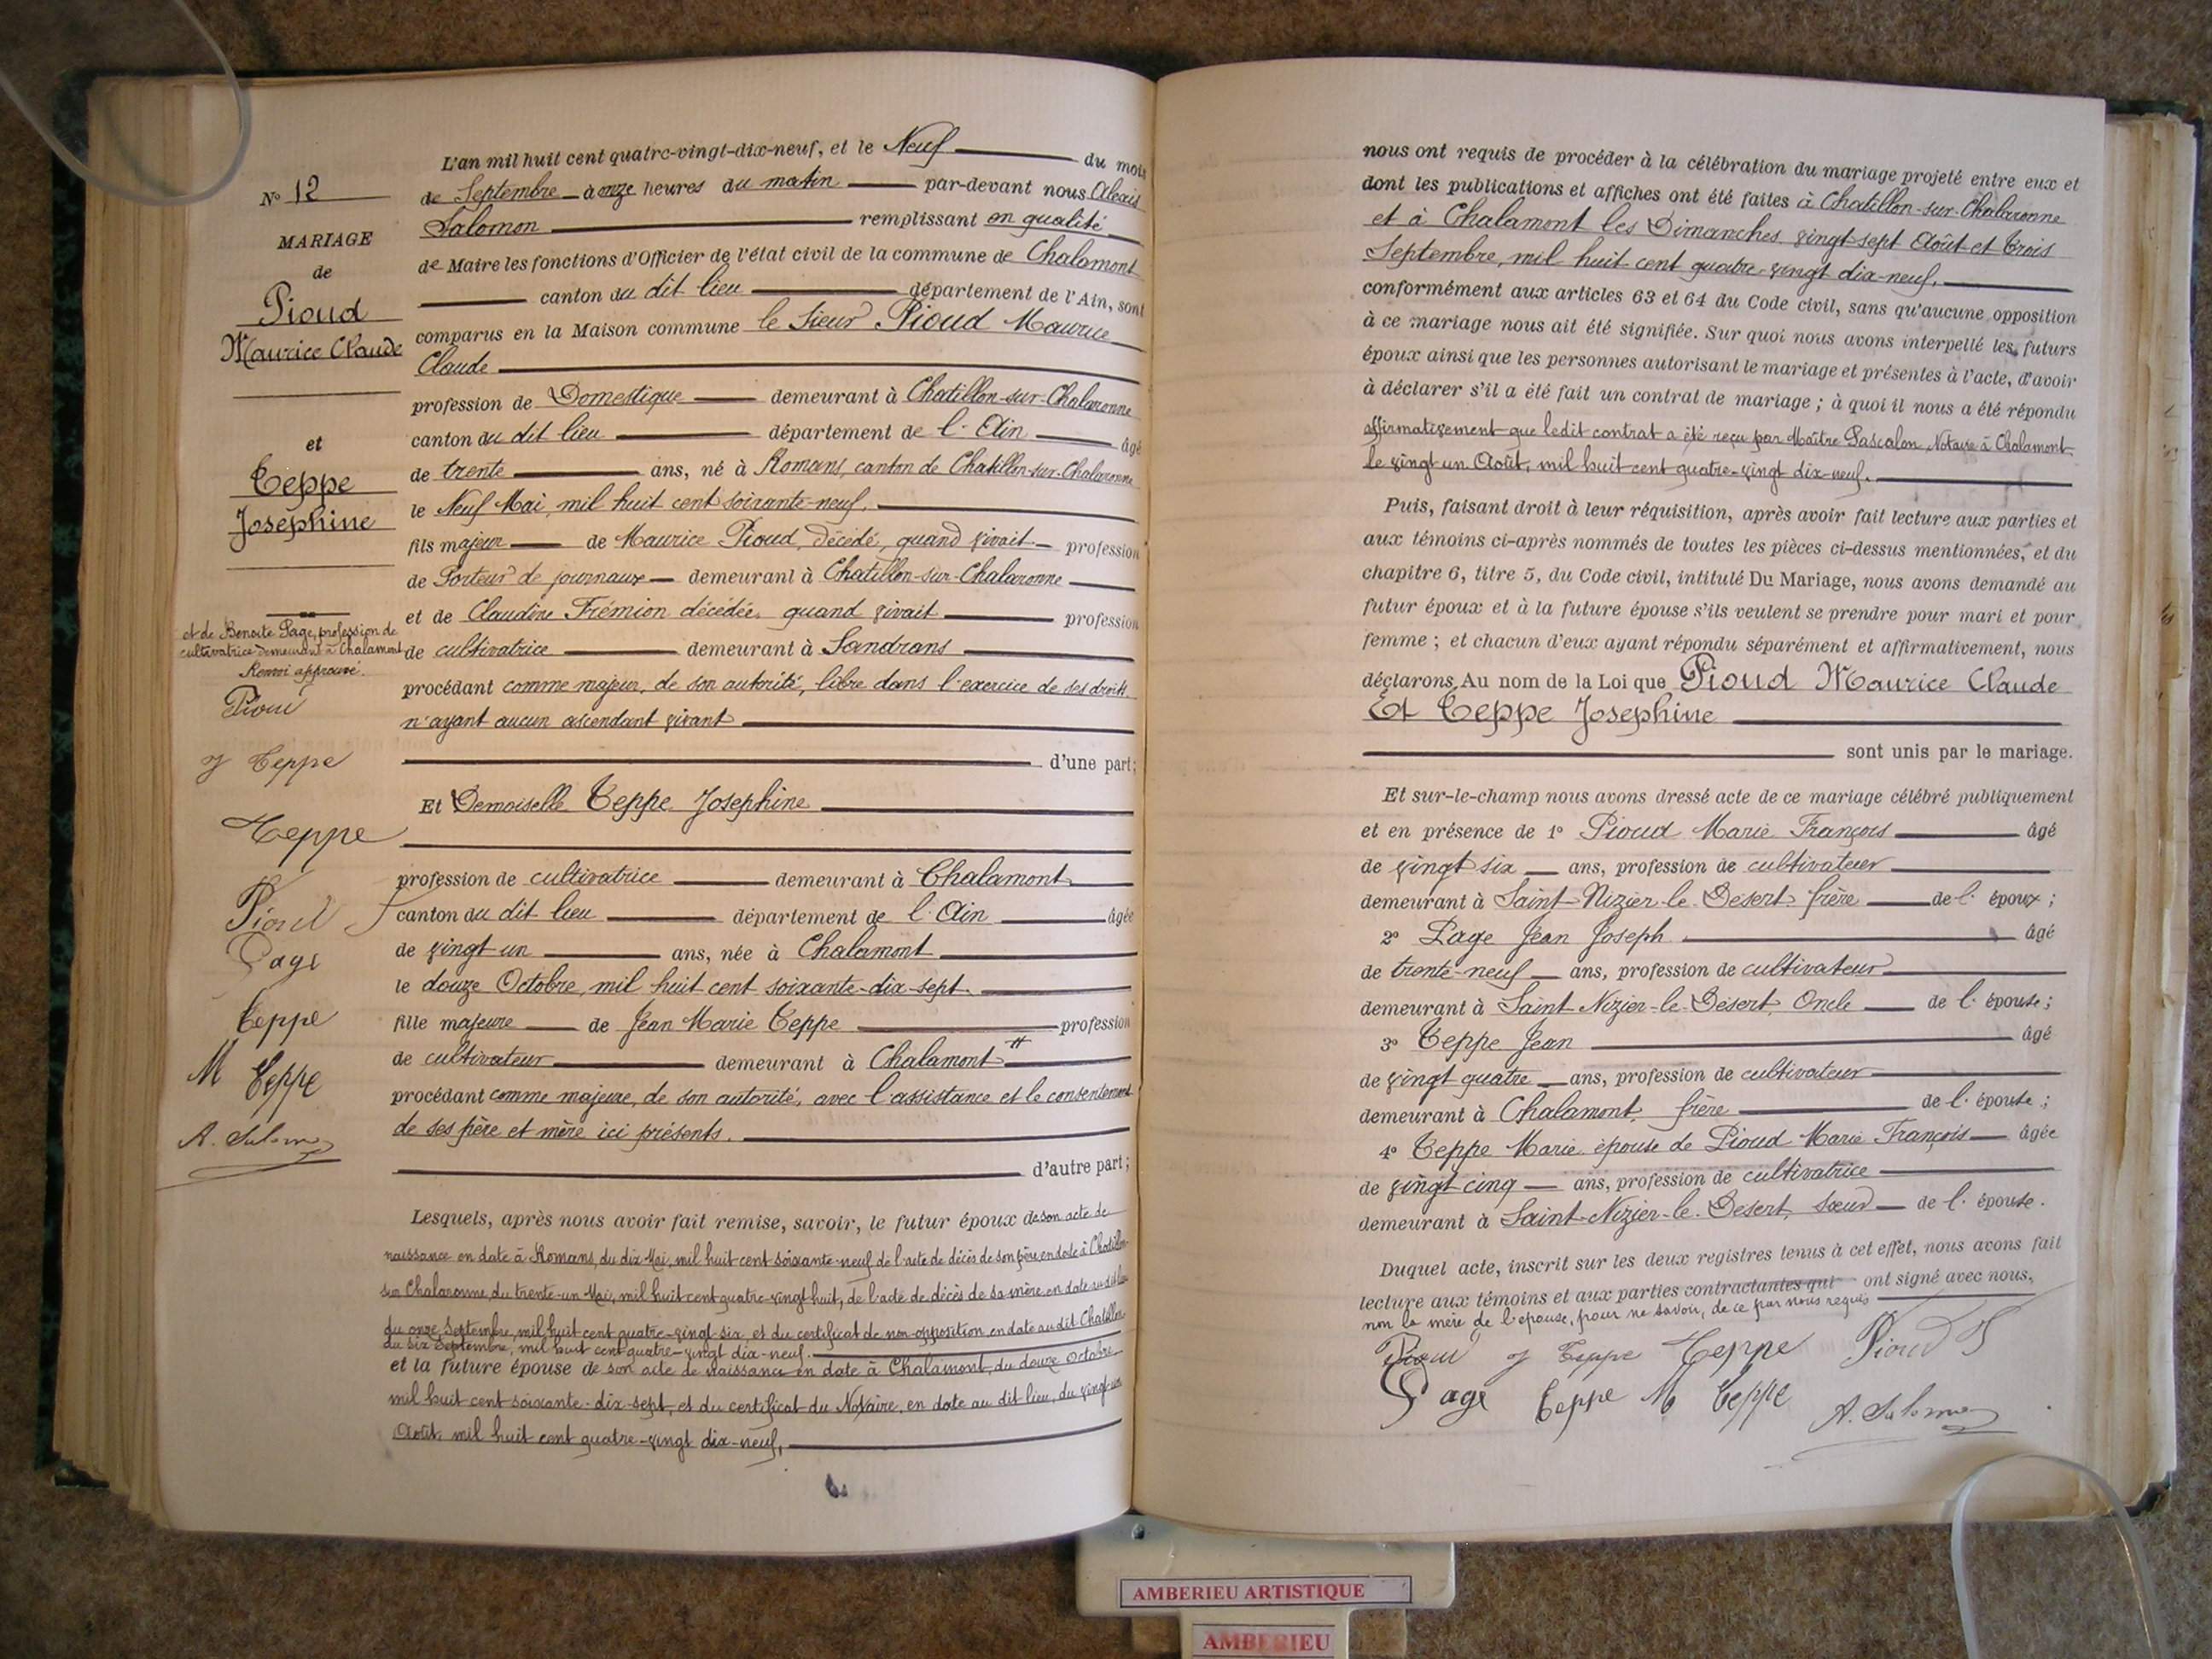 N° 12
MARIAGE
de
Pioud
Maurice Claude
et
Teppe
Josephine
et de Benoite Page, profession de
cultivatrice demeurant à Chalamont
Renvoi approuvé.
Pioud
J Teppe
Teppe
Pioud
Page
Teppe
M Teppe
A. Salomon
L'an mil huit cent quatre-vingt-dix-neuf, et le Neuf du mois
de Septembre à onze heures du matin par-devant nous Alexis
Salomon remplissant en qualité
de Maire les fonctions d'Officier de l'état civil de la commune de Chalamont
canton du dit lieu département de l'Ain, sont
comparus en la Maison commune le Sieur Pioud Maurice
Claude
profession de Domestique demeurant à Chatillon-sur-Chalaronne
canton du dit lieu département de l'Ain âgé
de trente ans, né à Romans, canton de Chatillon-sur-Chalaronne
le Neuf Mai, mil huit cent soixante-neuf.
fils majeur de Maurice Pioud, décédé, quand vivait profession
de Porteur de journaux demeurant à Chatillon-sur-Chalaronne
et de Claudine Frémion décédée, quand vivait profession
de cultivatrice demeurant à Sandrans
procédant comme majeur, de son autorité, libre dans l'exercice de ses droits
n'ayant aucun ascendant vivant
d'une part;
Et Demoiselle Teppe Josephine
profession de cultivatrice demeurant à Chalamont
canton du dit lieu département de l'Ain âgée
de vingt un ans, née à Chalamont
le douze Octobre, mil huit cent soixante-dix-sept.
fille majeure de Jean Marie Teppe profession
de cultivateur demeurant à Chalamont #
procédant comme majeure, de son autorité, avec l'assistance et le consentement
de ses père et mère ici présents.
d'autre part;
Lesquels, après nous avoir fait remise, savoir, le futur époux de son acte de
naissance en date à Romans, du dix Mai, mil huit cent soixante-neuf de l'acte de décès de son père, en date à Chatillon
sur Chalaronne, du trente-un Mai, mil huit cent quatre-vingt huit, de l'acte de décès de sa mère, en date au dit lieu
du onze Septembre, mil huit cent quatre-vingt-six, et du certificat de non-opposition, en date au dit Chatillon
du six Septembre, mil huit cent quatre-vingt dix-neuf.
et la future épouse de son acte de naissance en date à Chalamont, du douze Octobre
mil huit cent soixante-dix-sept, et du certificat du Notaire, en date au dit lieu, du vingt-un
Août, mil huit cent quatre-vingt dix-neuf,
nous ont requis de procéder à la célébration du mariage projeté entre eux et
dont les publications et affiches ont été faites à Chatillon-sur-Chalaronne
et à Chalamont les Dimanches vingt-sept Août et trois
Septembre, mil huit cent quatre-vingt dix-neuf,
conformément aux articles 63 et 64 du Code civil, sans qu'aucune opposition
à ce mariage nous ait été signifiée. Sur quoi nous avons interpellé les futurs
époux ainsi que les personnes autorisant le mariage et présentes à l'acte, d'avoir
à déclarer s'il a été fait un contrat de mariage; à quoi il nous a été répondu
affirmativement que ledit contrat a été reçu par Maître Pascalon Notaire à Chalamont
le vingt un Août, mil huit cent quatre-vingt dix-neuf.
Puis, faisant droit à leur réquisition, après avoir fait lecture aux parties et
aux témoins ci-après nommés de toutes les pièces ci-dessus mentionnées, et du
chapitre 6, titre 5, du Code civil, intitulé Du Mariage, nous avons demandé au
futur époux et à la future épouse s'ils veulent se prendre pour mari et pour
femme; et chacun d'eux ayant répondu séparément et affirmativement, nous
déclarons Au nom de la Loi que Pioud Maurice Claude
Et Teppe Josephine
sont unis par le mariage.
Et sur-le-champ nous avons dressé acte de ce mariage célébré publiquement
et en présence de 1° Pioud Marie François âgé
de vingt six ans, profession de cultivateur
demeurant à Saint-Nizier-le-Désert frère de l'époux;
2° Page Jean Joseph âgé
de trente-neuf ans, profession de cultivateur
demeurant à Saint-Nizier-le-Désert, Oncle de l'épouse;
3° Teppe Jean âgé
de vingt quatre ans, profession de cultivateur
demeurant à Chalamont, frère de l'épouse;
4° Teppe Marie épouse de Pioud Marie François âgée
de vingt cinq ans, profession de cultivatrice
demeurant à Saint-Nizier-le-Désert, sœur de l'épouse.
Duquel acte, inscrit sur les deux registres tenus à cet effet, nous avons fait
lecture aux témoins et aux parties contractantes qui ont signé avec nous,
non la mère de l'épouse, pour ne savoir, de ce par nous requis
Pioud J Teppe Teppe Pioud
Page Teppe M Teppe
A. Salomon
AMBERIEU ARTISTIQUE
AMBERIEU